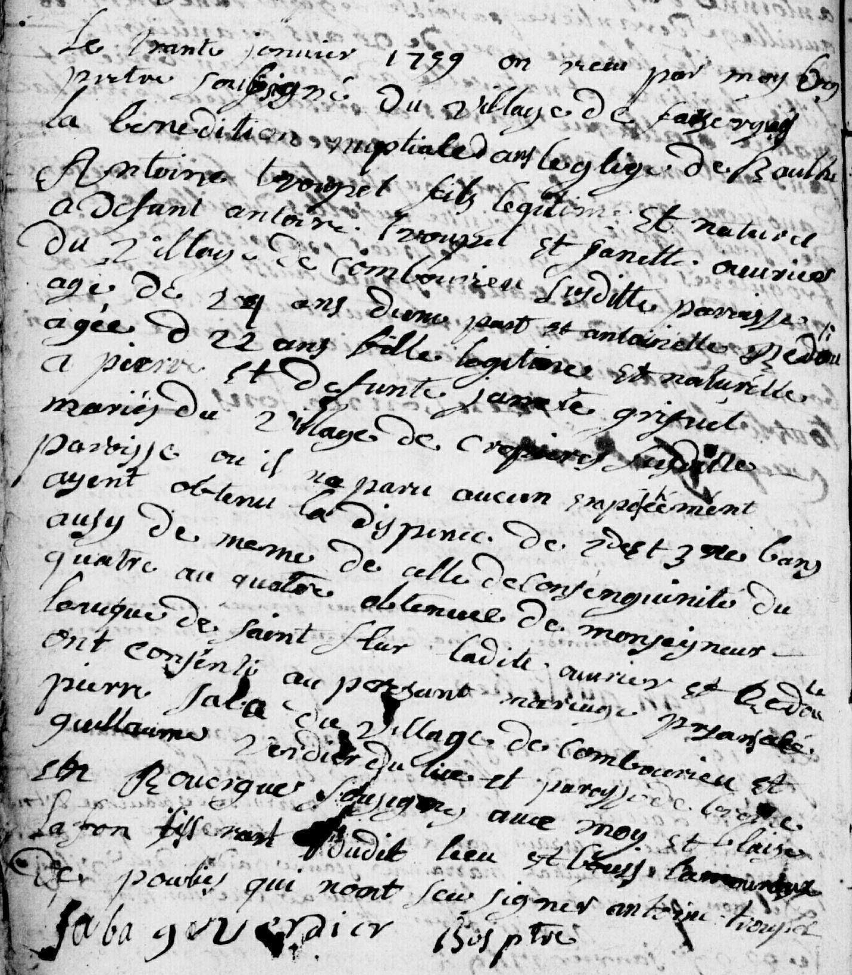 Le trante janvier 1759 on reçu par moy Bos
pretre soubsigné du village de
la benediction nuptiale dans leglize de
Antoine troupel fils legitime et naturel
a defunt antoine troupel et janette ouvrier
du village de Combourieu susditte paroisse
age de 24 ans dune part et antoinette Redou
agée d 22 ans fille legitime et naturelle
a pierre et defunte janete grifuel
mariés du village de Crepieres susditte
paroisse ou il na paru aucun empechement
ayent obtenu la dispence de 2de et 3me bans
ausy de meme de celle de consenguinité du
quatre au quatre obtenue de monseigneur
leveque de saint flur ladite ouvrier et Redou
ont consenti au presant mariage presants
pierre saba du village de Combourieu et
guillaume verdier du lieu et paroisse de
en Rouergue sousignes avec moy et blaise
tisserant dudit lieu et Louis Lamouroux
de poulis qui nont seu signer antoine troupel
saba g verdier Bos ptre